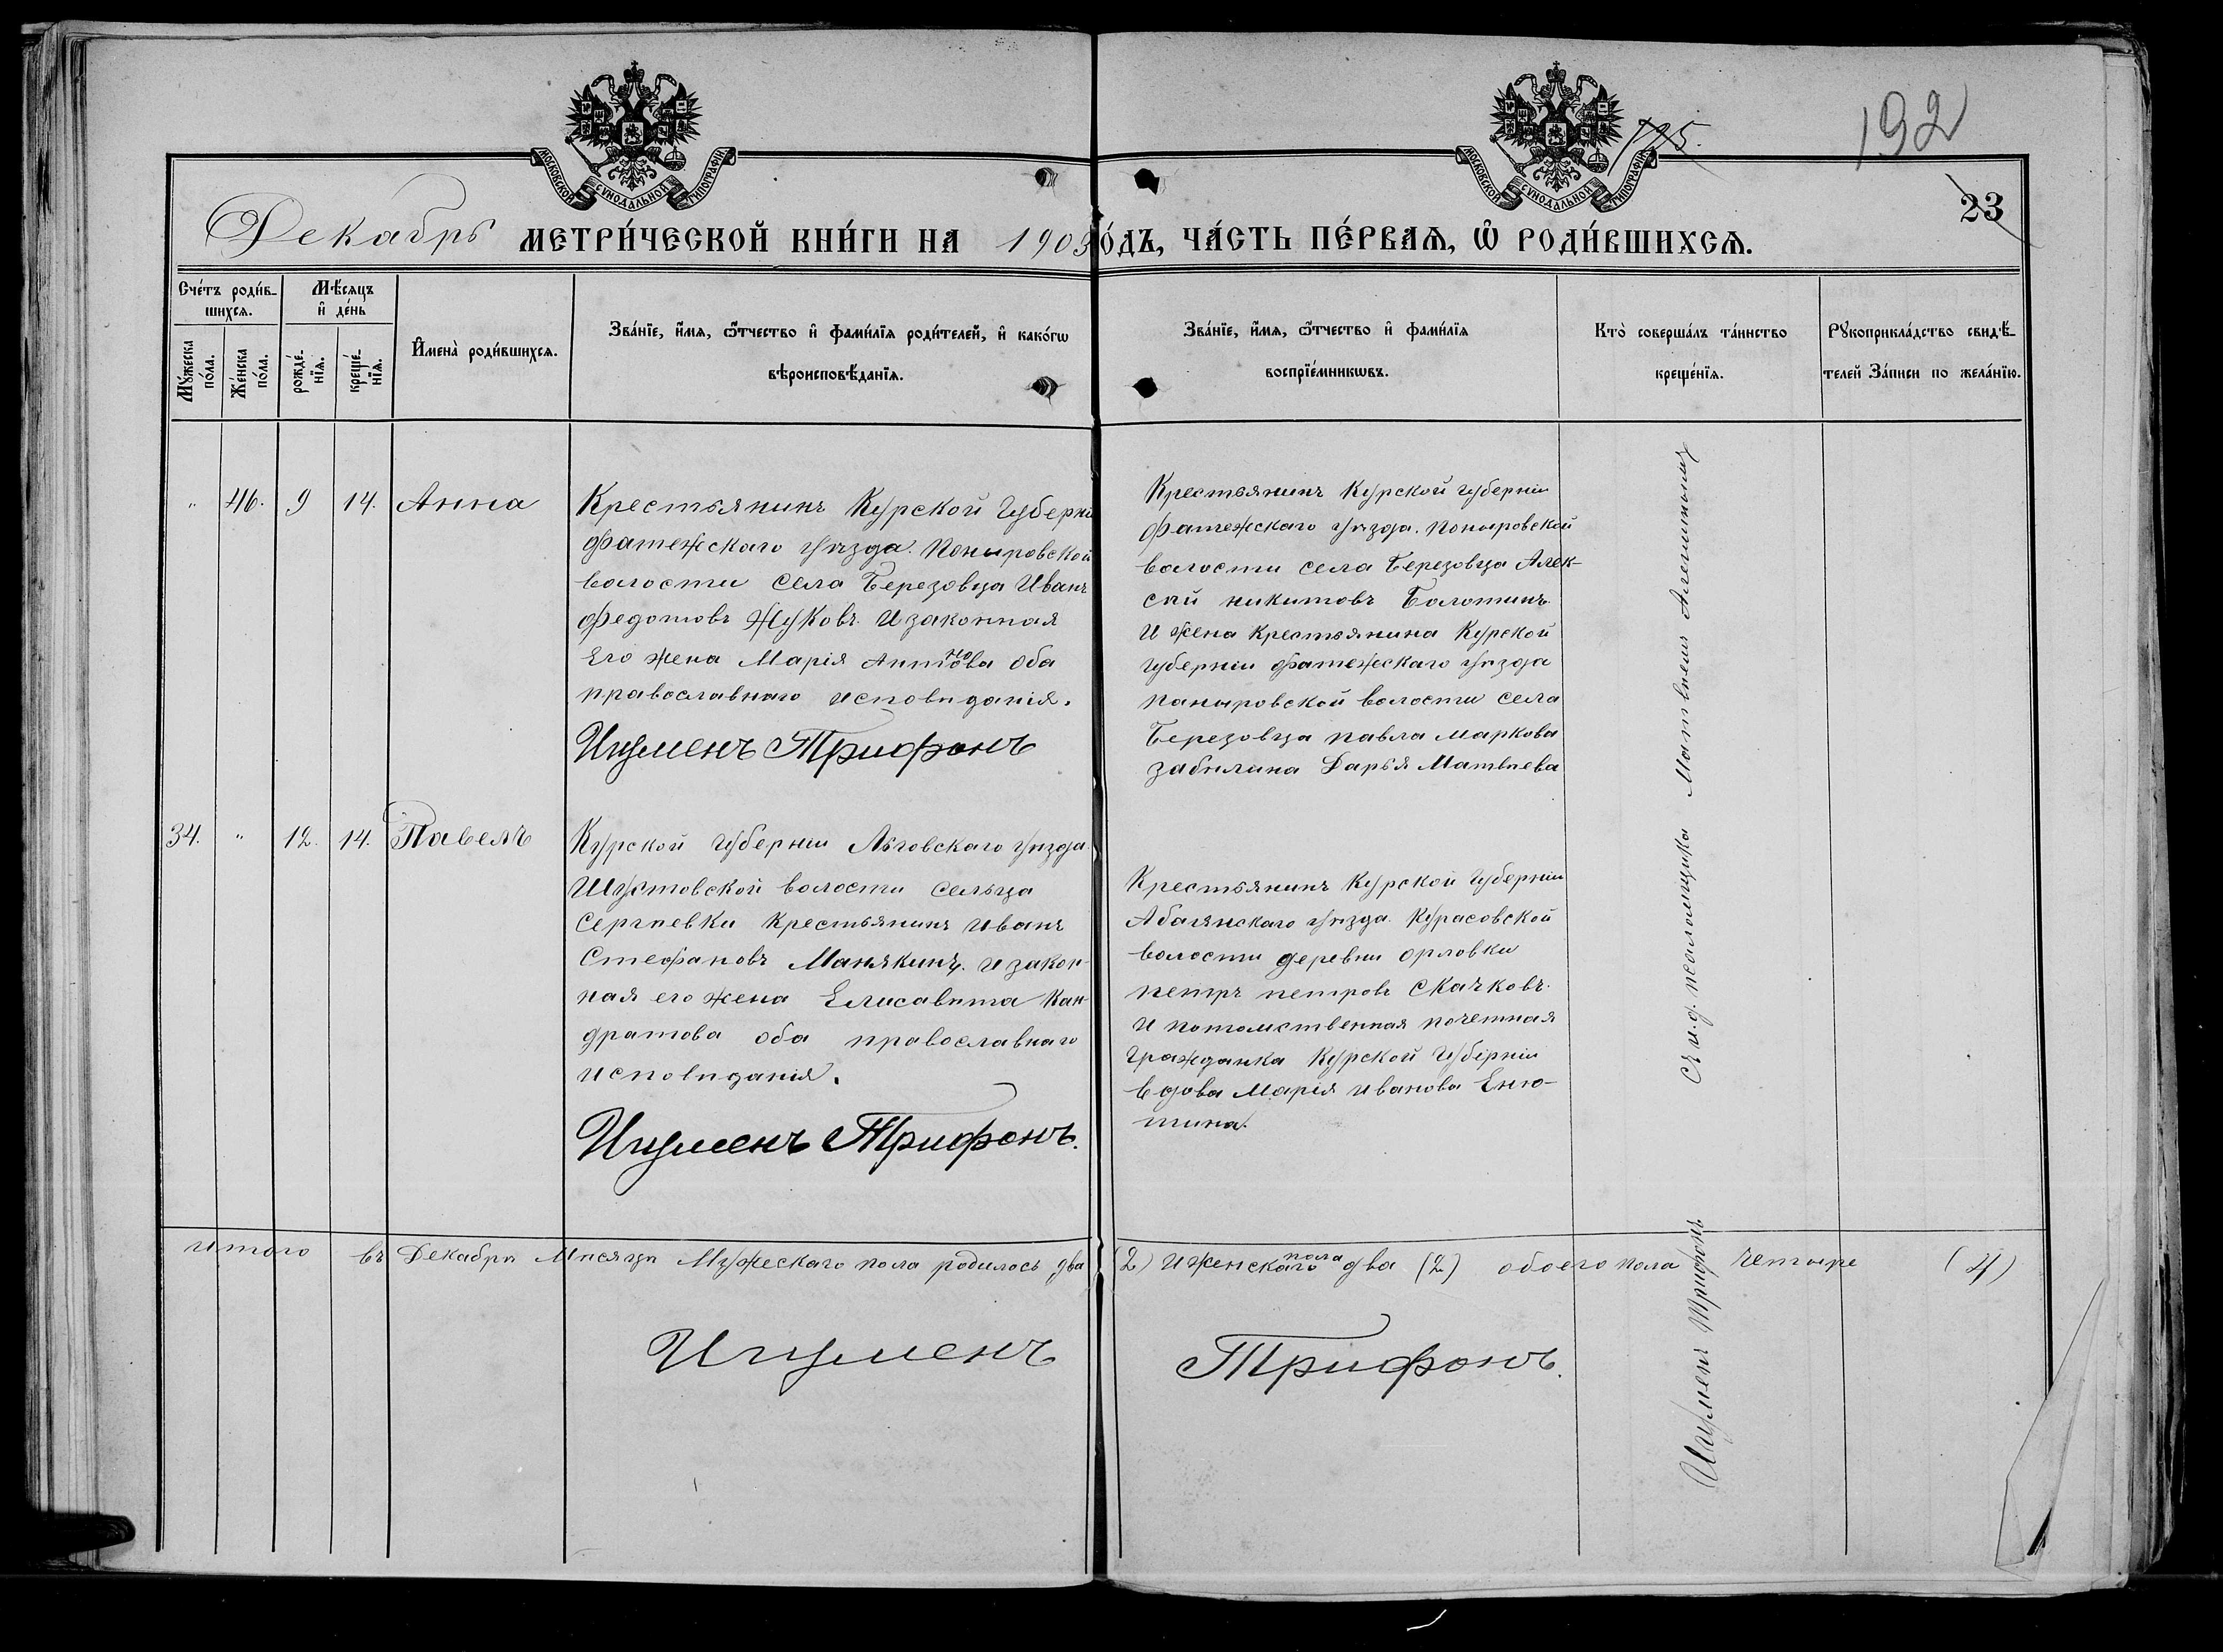 МОСКОВСКОЙ СѴНОДАЛЬНОЙ ТИПОГРАФІИ
МОСКОВСКОЙ СѴНОДАЛЬНОЙ ТИПОГРАФІИ
195.
192
23
Декабрь МЕТРИ́ЧЕСКОЙ КНИ́ГИ НА 1903
О́ДЪ, ЧА́СТЬ ПЕ́РВАѦ, Ѡ҆ РОДИ́ВШИХСѦ.
Сче́тъ роди́в-
шихсѧ.
Мꙋ́жеска
по́ла.
Же́нска
по́ла.
Мѣ́сѧцъ
и҆ де́нь
рожде́-
нїѧ.
креще́-
нїѧ.
И҆мена̀ роди́вшихсѧ.
Зва́нїе, и҆́мѧ, ѻ҆́тчество и҆ фами́лїѧ роди́телей, и҆ како́гѡ
вѣроисповѣ́данїѧ.
Зва́нїе, и҆́мѧ, ѻ҆́тчество и҆ фами́лїѧ
воспрїе́мникѡвъ.
Кто̀ соверша́лъ та́инство
креще́нїѧ.
Рꙋкоприкла́дство свидѣ́-
телей За́писи по жела́нїю.
" 46. 9 14. Анна
Крестьянинъ Курской Губерні
фатежскаго уѣзда. Поныровской
волости села Березовца Иванъ
федотовъ Жуковъ. И законная
Его жена Марія Антонова оба
православнаго исповѣданія.
Игуменъ Трифонъ
Крестьянинъ Курской губерніи
фатежскаго уѣзда. поныровской
волости села Березовца Алек-
сѣй никитовъ Болотинъ.
И жена крестьянина Курской
губерніи фатежескаго уѣзда
поныровской волости села
Березовца павла маркова
забѣлина Дарья Матвѣева
34. " 12. 14. Павелъ
Курской губерніи Льговскаго уѣзда.
Шустовской волости сельца
Сергѣевки крестьянинъ иванъ
Стефановъ Манякинъ. и закон-
ная его жена Елисавѣта Кан-
дратова оба православнаго
исповѣданія.
Игуменъ Трифонъ.
Крестьянинъ Курской Губерніи
Абаянскаго уѣзда. Курасовской
волости деревни орловки
петръ петровъ Скачковъ.
и потомственная почетная
Гражданка Курской Губірніи
вдова Марія иванова Еню-
тина.
Игуменъ Трифонъ
Съ и. д. псаломщика Матвѣемъ
итого въ Декабрѣ Мѣсяцѣ Мужескаго пола родилось два
(2) и женскаго пола два (2) обоего пола четыре (4)
Игуменъ
Трифонъ.